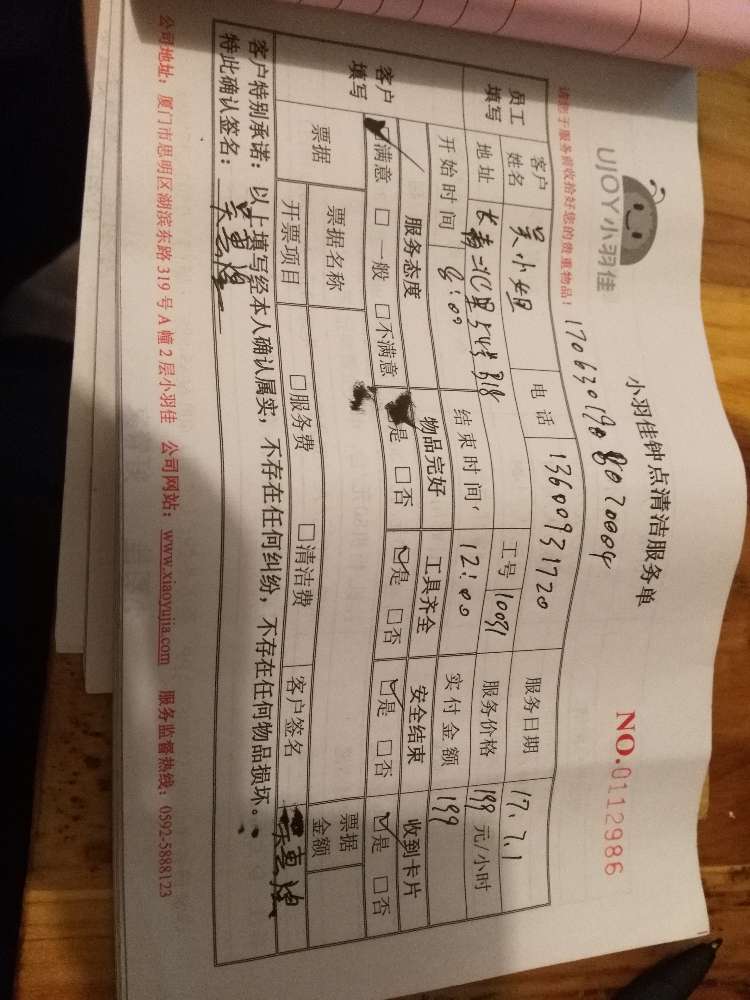 UJOY小羽佳
小羽佳钟点清洁服务单
NO.0112986
请您于服务前收拾好您的贵重物品！
员工填写
客户姓名 吴小姐 电话 13600931720 服务日期 17.7.1
地址 工号 10091 服务价格 199 元/小时
开始时间 8:00 结束时间 12:00 实付金额 199
客户填写
服务态度 物品完好 工具齐全 安全结束 收到卡片
满意 □一般 □不满意 是 □否 是 □否 是 □否 是 □否
票据 票据名称 票据金额
开票项目 □服务费 □清洁费 客户签名
客户特别承诺：以上填写经本人确认属实，不存在任何纠纷，不存在任何物品损坏。
特此确认签名：
公司地址：厦门市思明区湖滨东路319号A幢2层小羽佳 公司网站：www.xiaoyujia.com 服务监督热线：0592-5888123